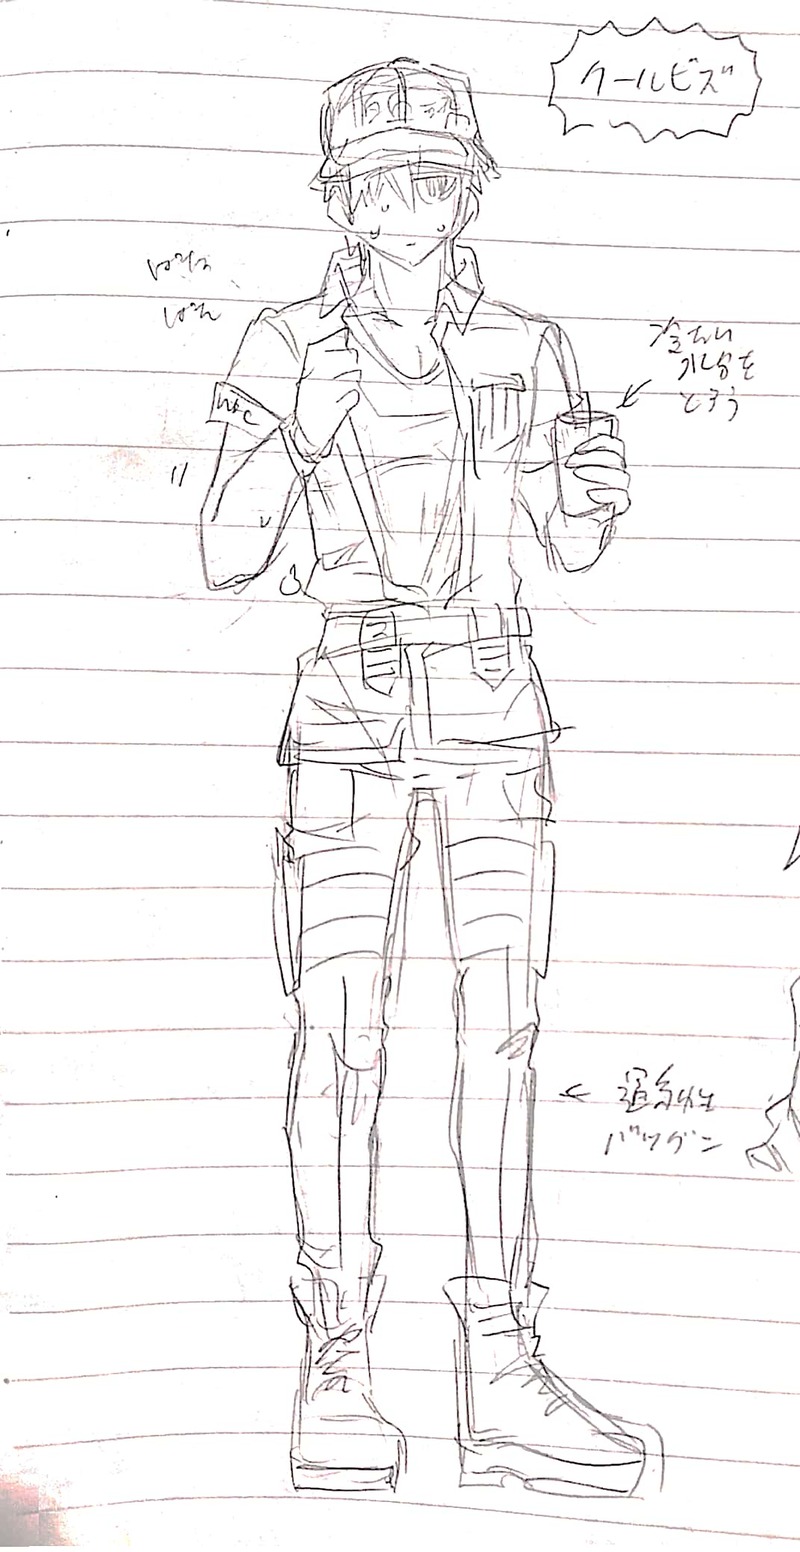 クールビズ
ぱた
ぱた
冷たい
水分を
とろう
WBC
通気性
バツグン